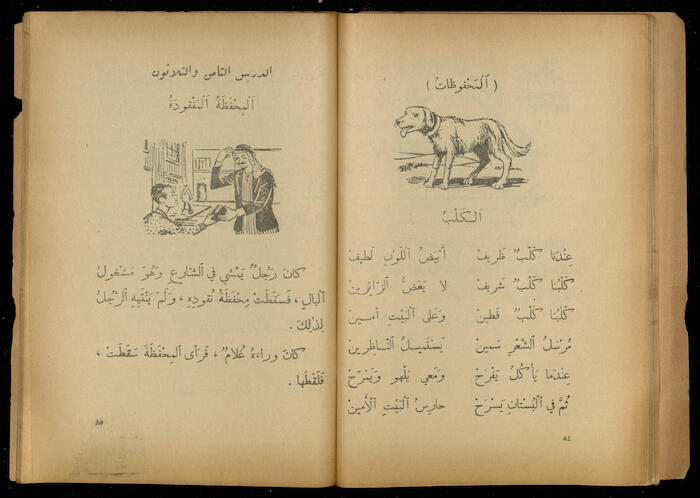 ( اَلمَحْفُوظَاتُ )
اَلـكَلْبُ
عِنْدَنا كَلْبٌ ظَرِيفْ أَبْيَضُ اللَّوْنِ لَطِيفْ
كَلْبُنا كَلْبٌ شَرِيفْ لا يَعَضُّ الزَّائِرِينْ
كَلْبُنا كَلْبٌ فَطِينْ وَعَلَى الْبَيْتِ أَمِينْ
مُرْسَلُ الشَّعْرِ سَمِينْ يَسْتَمِيلُ النَّاظِرِينْ
عِنْدَما يَأْكُلُ يَفْرَحْ وَمَعِي يَلْهو وَيَمْرَحْ
ثُمَّ فِي الْبُسْتانِ يَسْرَحْ حارِسُ الْبَيْتِ الْأَمِينْ
٨٤
الدرس الثامن والثلاثون
اَلمِحْفَظَةُ اَلمَفْقودَةُ
كانَ رَجُلٌ يَمْشِي فِي الشَّارِعِ وَهُوَ مَشْغُولُ
الْبالِ ، فَسَقَطَتْ مِحْفَظَةُ نُقودِهِ ، وَلَمْ يَنْتَبِهِ الرَّجُلُ
لِذٰلِكَ .
كانَ وَراءَهُ غُلامٌ ، فَرَأَى الْمِحْفَظَةَ سَقَطَتْ ،
فَلَقَطَها .
٨٥